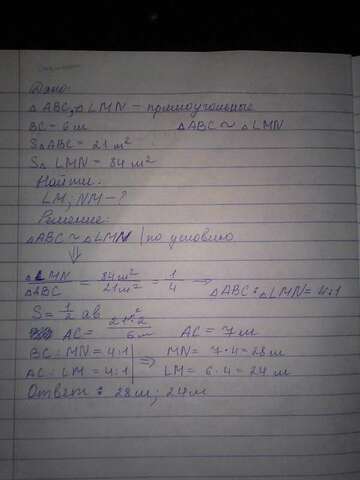 Дано:
△ABC, △LMN – прямоугольные
BC = 6м △ABC ~ △LMN
S△ABC = 21 м²
S△LMN = 84 м²
Найти:
LM; NM – ?
Решение:
△ABC ~ △LMN | по условию
⇓
△LMN / △ABC = 84м² / 21м² = 1/4 → △ABC : △LMN = 4:1
S = 1/2 ab
AC = 21м²·2 / 6м AC = 7м
BC : MN = 4:1 | ⇒ MN = 7·4 = 28м
AC : LM = 4:1 | LM = 6·4 = 24 м
Ответ: 28м; 24м